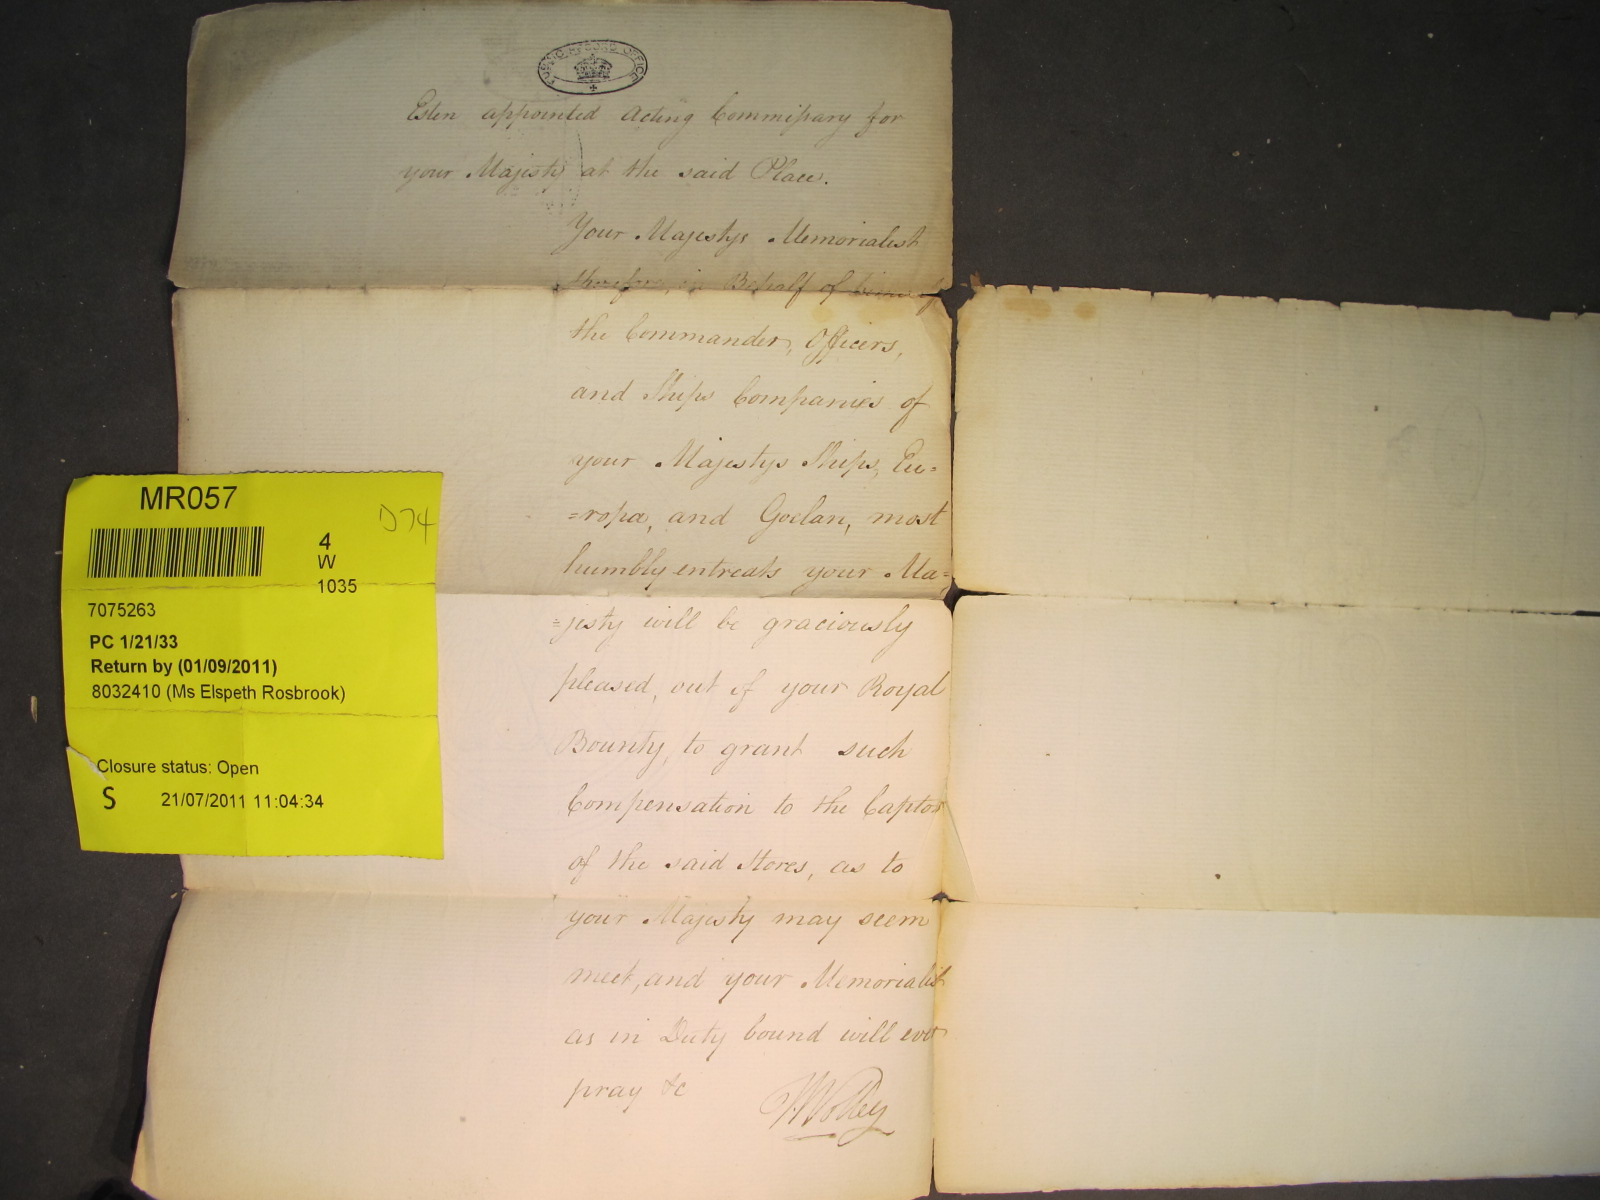 PUBLIC RECORD OFFICE
Esten appointed Acting Commissary for
your Majesty at the said Place.
Your Majestys Memorialist
therefore, in Behalf of himself
the Commander, Officers,
and Ships Companies of
your Majestys Ships, Eu=
=ropa, and Goelan, most
humbly entreats your Ma=
=jesty will be graciously
pleased, out of your Royal
Bounty, to grant such
Compensation to the Captors
of the said Stores, as to
your Majesty may seem
meet, and your Memorialist
as in Duty bound will ever
pray &c
Wolley
MR057
D74
4
W
1035
7075263
PC 1/21/33
Return by (01/09/2011)
8032410 (Ms Elspeth Rosbrook)
Closure status: Open
S 21/07/2011 11:04:34